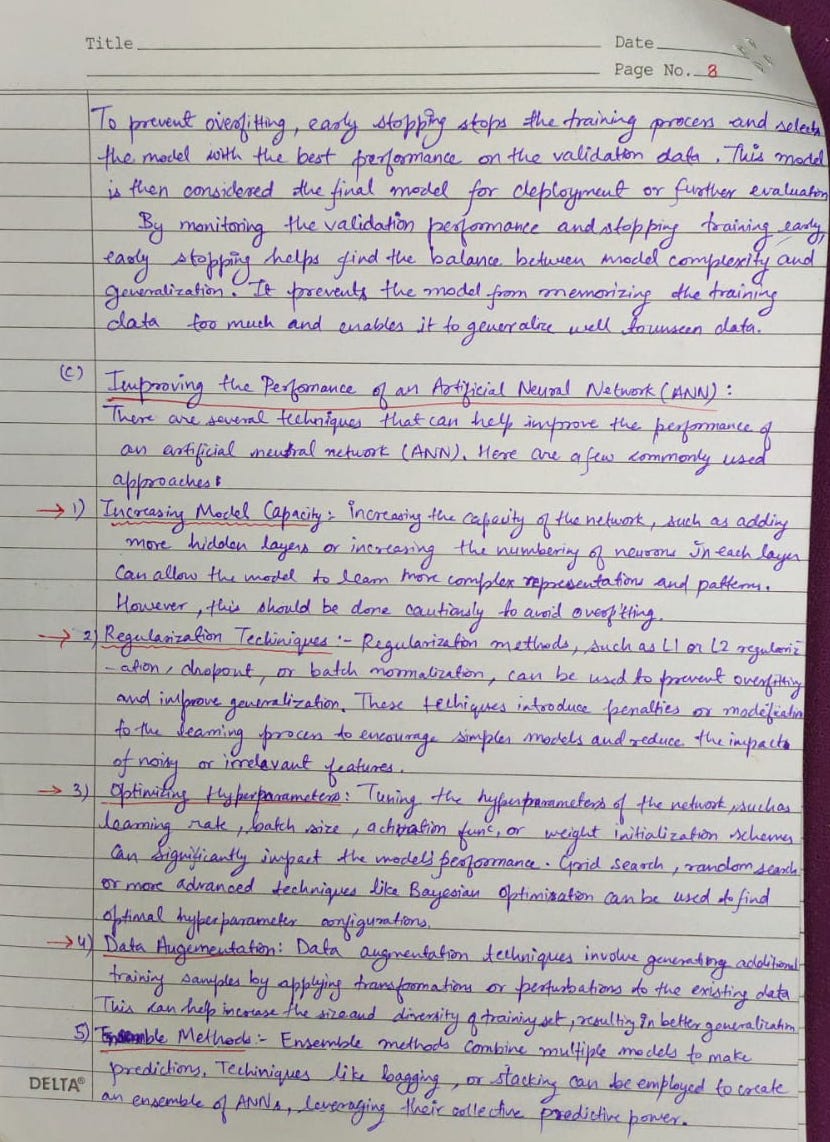 Title Date
Page No. 8
To prevent overfitting, early stopping stops the training process and selects
the model with the best performance on the validation data. This model
is then considered the final model for deployment or further evaluation
By monitoring the validation performance and stopping training early,
early stopping helps find the balance between model complexity and
generalization. It prevents the model from memorizing the training
data too much and enables it to generalize well to unseen data.
(c) Improving the Perfomance of an Artificial Neural Network (ANN) :
There are several techniques that can help improve the performance of
an artificial neutral network (ANN). Here are a few commonly used
approaches:
→ 1) Increasing Model Capacity: increasing the capacity of the network, such as adding
more hidden layers or increasing the numbering of neurons in each layer
Can allow the model to learn more complex representations and patterns.
However, this should be done cautiously to avoid overfitting.
→ 2) Regularization Techiniques :- Regularization methods, such as L1 or L2 regulariz
-ation, dropout, or batch normalization, can be used to prevent overfitting
and improve generalization. These techiques introduce penalties or modification
to the learning process to encourage simpler models and reduce the impacts
of noisy or irrelavant features.
→ 3) Optimizing Hyperparameters: Tuning the hyperparameters of the network, such as
learning rate, batch size, activation func, or weight initialization schemes
Can significantly impact the model's performance. Grid search, random search
or more advanced techniques like Bayesian Optimization can be used to find
optimal hyperparameter configurations.
→ 4) Data Augementation: Data augmentation techniques involve generating additional
training samples by applying transformations or perturbations to the existing data
This can help increase the size and diversity of training set, resulting in better generalization
5) Ensemble Methods :- Ensemble methods combine multiple models to make
predictions. Techiniques like bagging, or stacking can be employed to create
an ensemble of ANNs, leveraging their collective predictive power.
DELTA®